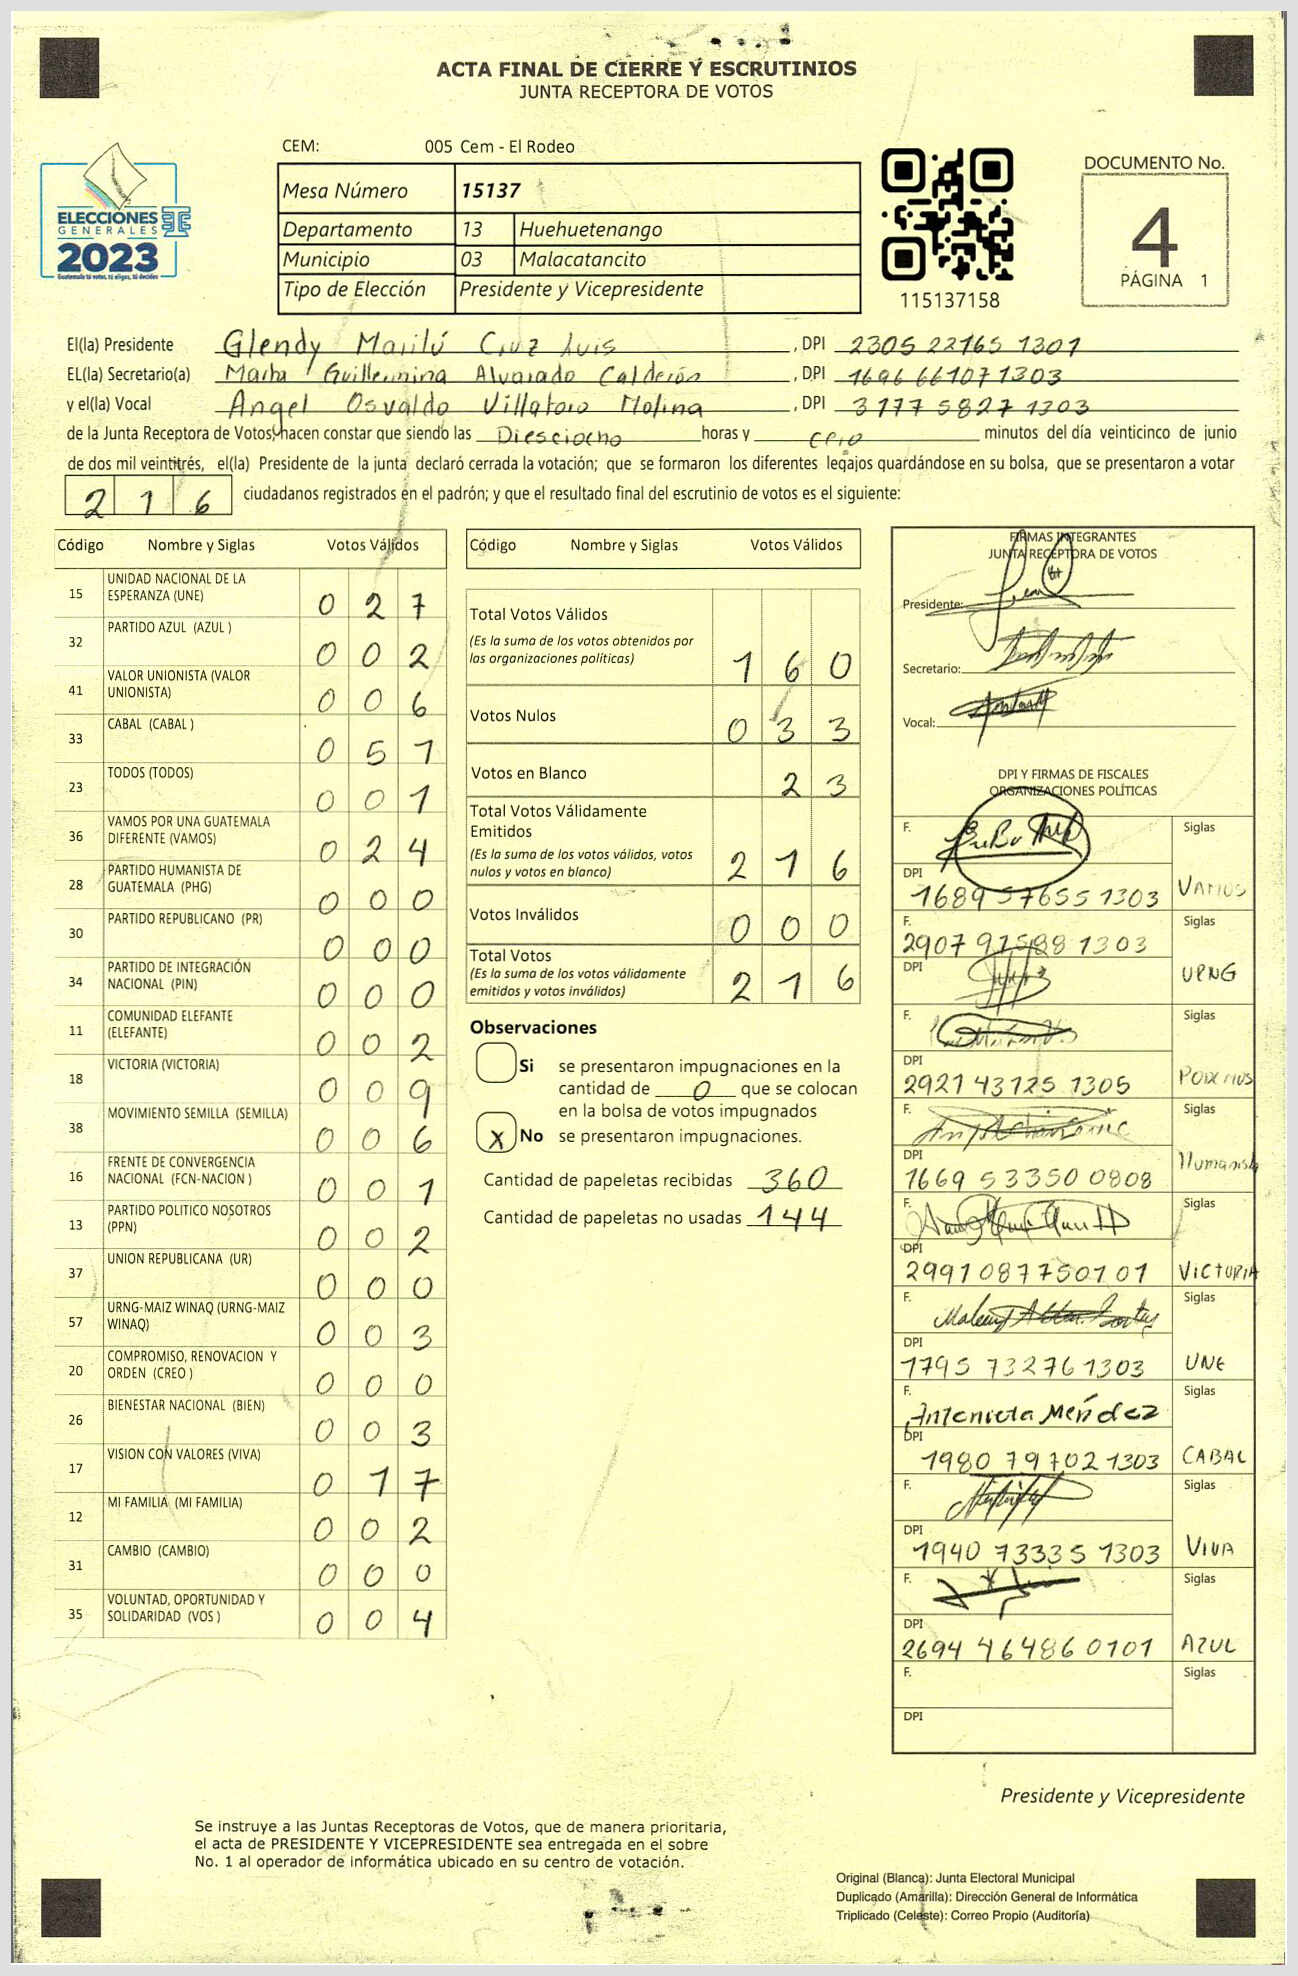 ACTA FINAL DE CIERRE Y ESCRUTINIOS
JUNTA RECEPTORA DE VOTOS
CEM: 005 Cem - El Rodeo
ELECCIONES
GENERALES
2023
Guatemala tú votas, tú eliges, tú decides
Mesa Número 15137
Departamento 13 Huehuetenango
Municipio 03 Malacatancito
Tipo de Elección Presidente y Vicepresidente
115137158
DOCUMENTO No.
4
PÁGINA 1
El(la) Presidente Glendy Marilú Cruz Luis, DPI 2305 22165 1301
EL(la) Secretario(a) Marta Guillermina Alvarado Calderón, DPI 1696 66107 1303
y el(la) Vocal Angel Osvaldo Villatoro Molina, DPI 3177 5827 1303
de la Junta Receptora de Votos, hacen constar que siendo las Diesciocho horas y cero minutos del día veinticinco de junio
de dos mil veintitrés, el(la) Presidente de la junta declaró cerrada la votación; que se formaron los diferentes legajos quardándose en su bolsa, que se presentaron a votar
2 1 6 ciudadanos registrados en el padrón; y que el resultado final del escrutinio de votos es el siguiente:
Código Nombre y Siglas Votos Válidos
15 UNIDAD NACIONAL DE LA ESPERANZA (UNE) 0 2 7
32 PARTIDO AZUL (AZUL ) 0 0 2
41 VALOR UNIONISTA (VALOR UNIONISTA) 0 0 6
33 CABAL (CABAL ) 0 5 1
23 TODOS (TODOS) 0 0 1
36 VAMOS POR UNA GUATEMALA DIFERENTE (VAMOS) 0 2 4
28 PARTIDO HUMANISTA DE GUATEMALA (PHG) 0 0 0
30 PARTIDO REPUBLICANO (PR) 0 0 0
34 PARTIDO DE INTEGRACIÓN NACIONAL (PIN) 0 0 0
11 COMUNIDAD ELEFANTE (ELEFANTE) 0 0 2
18 VICTORIA (VICTORIA) 0 0 9
38 MOVIMIENTO SEMILLA (SEMILLA) 0 0 6
16 FRENTE DE CONVERGENCIA NACIONAL (FCN-NACION ) 0 0 1
13 PARTIDO POLITICO NOSOTROS (PPN) 0 0 2
37 UNION REPUBLICANA (UR) 0 0 0
57 URNG-MAIZ WINAQ (URNG-MAIZ WINAQ) 0 0 3
20 COMPROMISO, RENOVACION Y ORDEN (CREO ) 0 0 0
26 BIENESTAR NACIONAL (BIEN) 0 0 3
17 VISION CON VALORES (VIVA) 0 1 7
12 MI FAMILIA (MI FAMILIA) 0 0 2
31 CAMBIO (CAMBIO) 0 0 0
35 VOLUNTAD, OPORTUNIDAD Y SOLIDARIDAD (VOS ) 0 0 4
Código Nombre y Siglas Votos Válidos
Total Votos Válidos
(Es la suma de los votos obtenidos por
las organizaciones políticas) 1 6 0
Votos Nulos 0 3 3
Votos en Blanco 2 3
Total Votos Válidamente
Emitidos
(Es la suma de los votos válidos, votos
nulos y votos en blanco) 2 1 6
Votos Inválidos 0 0 0
Total Votos
(Es la suma de los votos válidamente
emitidos y votos inválidos) 2 1 6
Observaciones
Si se presentaron impugnaciones en la
cantidad de 0 que se colocan
en la bolsa de votos impugnados
X No se presentaron impugnaciones.
Cantidad de papeletas recibidas 360
Cantidad de papeletas no usadas 144
FIRMAS INTEGRANTES
JUNTA RECEPTORA DE VOTOS
Presidente:
Secretario:
Vocal:
DPI Y FIRMAS DE FISCALES
ORGANIZACIONES POLÍTICAS
F. Siglas
DPI 1689 57655 1303 VAMOS
F. 2907 97588 1303 Siglas
DPI URNG
F. Siglas
DPI 2921 43125 1305 PODEMOS
F. Siglas
DPI 1669 53350 0808 Humanista
F. Siglas
DPI 2991 08775 0101 VICTORIA
F. Siglas
DPI 1795 73276 1303 UNE
F. Antonieta Méndez Siglas
DPI 1980 79702 1303 CABAL
F. Siglas
DPI 1940 73335 1303 VIVA
F. Siglas
DPI 2694 46486 0101 AZUL
F. Siglas
DPI
Presidente y Vicepresidente
Se instruye a las Juntas Receptoras de Votos, que de manera prioritaria,
el acta de PRESIDENTE Y VICEPRESIDENTE sea entregada en el sobre
No. 1 al operador de informática ubicado en su centro de votación.
Original (Blanca): Junta Electoral Municipal
Duplicado (Amarilla): Dirección General de Informática
Triplicado (Celeste): Correo Propio (Auditoría)